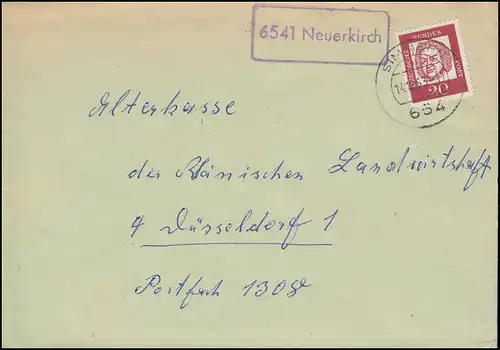 6541 Neuerkirch
DEUTSCHE BUNDESPOST
20
654
Alterkasse
der Rhänischen Landwirtshaft
4 Düsseldorf 1
Postfach 1308